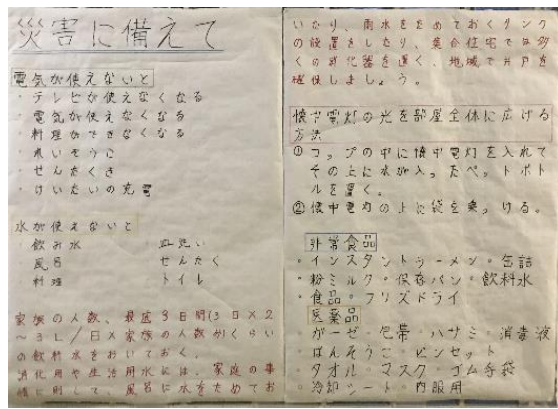 災害に備えて
電気が使えないと
・テレビが使えなくなる
・電気が使えなくなる
・料理ができなくなる
・れいぞうこ
・せんたくき
・けいたいの充電
水が使えないと
・飲お水 ・皿洗い
・風呂 せんたく
・料理 トイレ
家族の人数、最低3日間(3日×2
～3L／日×家族の人数分)くらい
の飲料水をおいておく。
消化用や生活用水には、家庭の事
情に則して、風呂に水をためてお
いたり、雨水をためておくタンク
の設置をしたり、集合住宅では多
くの消化器を置く、地域で井戸を
確保しましょう。
懐中電灯の光を部屋全体に広げる
方法
①コップの中に懐中電灯を入れて
その上に水が入ったペットボト
ルを置く。
②懐中電灯の上に袋を乗っける。
非常食品
・インスタントラーメン・缶詰
・粉ミルク・保存パン・飲料水
・食品・フリズドライ
医薬品
ガーゼ・包帯・ハサミ・消毒液
・ばんそうこ・ピンセット
・タオル・マスク・ゴム手袋
・冷却シート・内服用